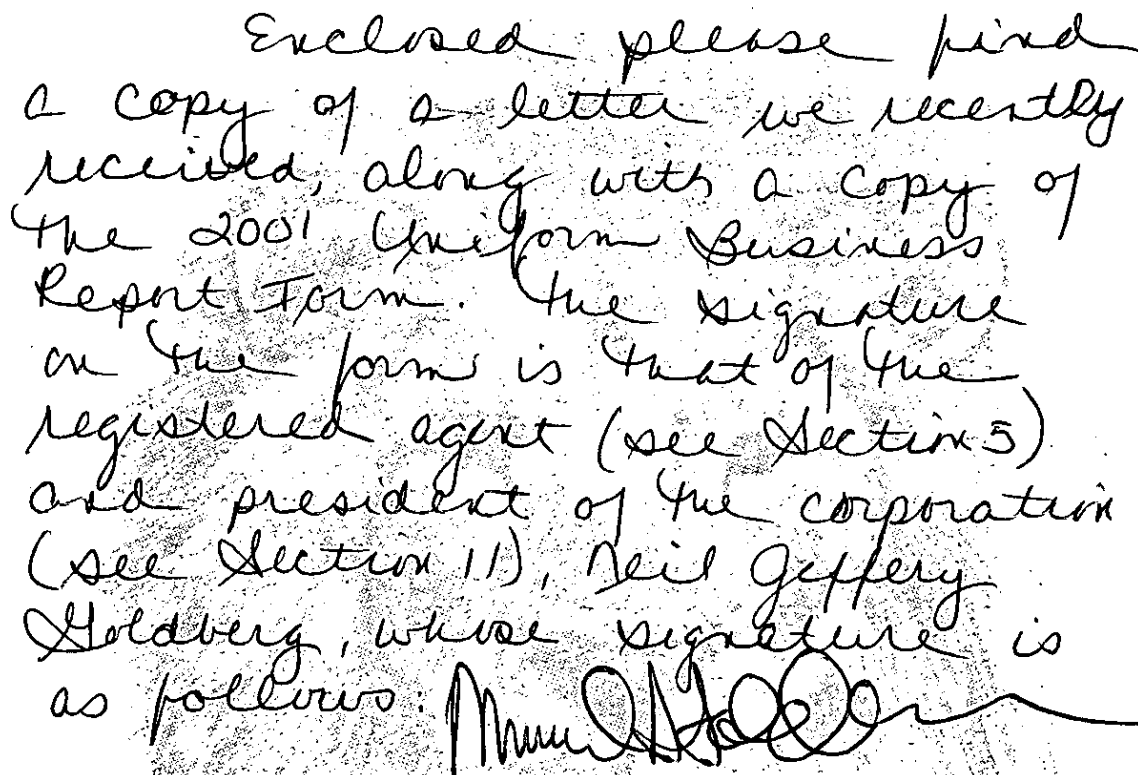 Enclosed please find
a copy of a letter we recently
received, along with a copy of
the 2001 Uniform Business
Report Form. The signature
on the form is that of the
registered agent (see Section 5)
and president of the corporation
(see Section 11), Neil Jeffery
Goldberg, whose signature is
as follows: